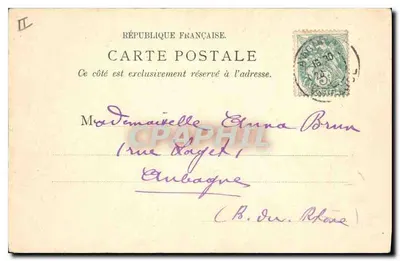 II
RÉPUBLIQUE FRANÇAISE.
CARTE POSTALE
Ce côté est exclusivement réservé à l'adresse.
Mademoiselle Anna Brun
1 rue Laget
Aubagne
(B. du. Rhône)
CPAPHIL